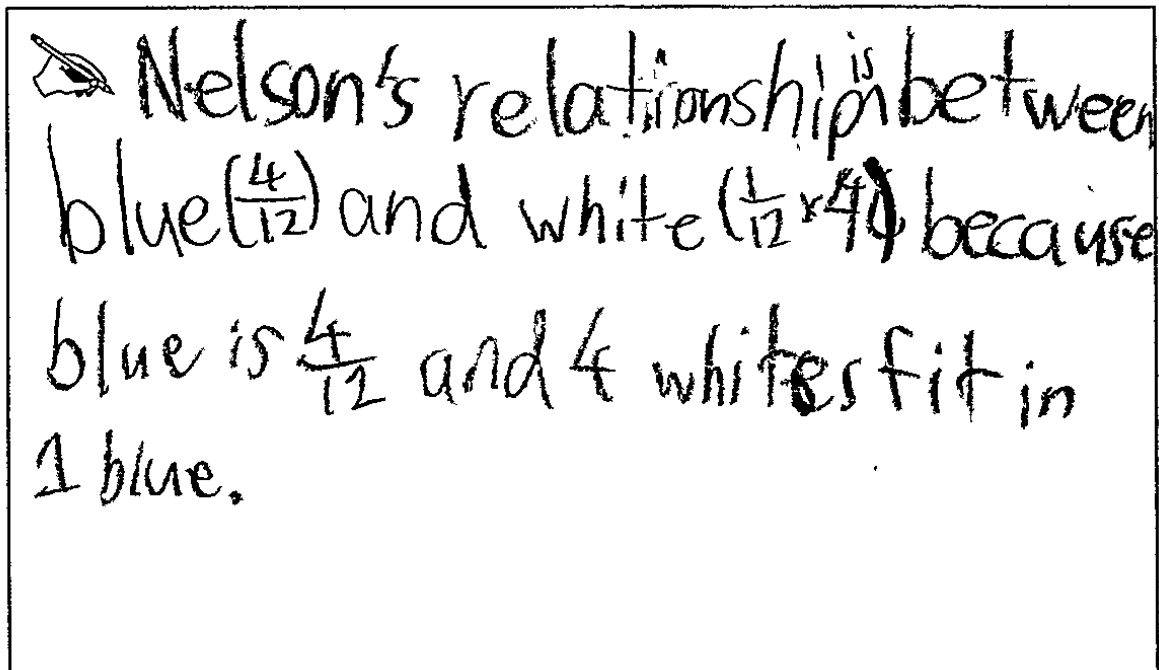 Nelson's relationship is between
blue (4/12) and white (1/12 x 4) because
blue is 4/12 and 4 whites fit in
1 blue.